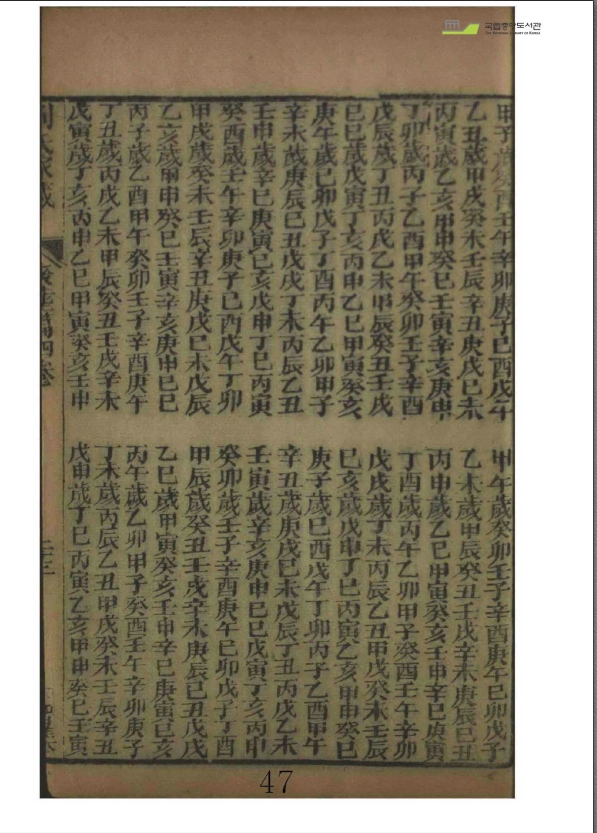 국립중앙도서관
THE NATIONAL LIBRARY OF KOREA
甲子歲癸酉壬午辛卯庚子己酉戊午 甲午歲癸卯壬子辛酉庚午己卯戊子
乙丑歲甲戌癸未壬辰辛丑庚戌己未 乙未歲甲辰癸丑壬戌辛未庚辰己丑
丙寅歲乙亥甲申癸巳壬寅辛亥庚申 丙申歲乙巳甲寅癸亥壬申辛巳庚寅
丁卯歲丙子乙酉甲午癸卯壬子辛酉 丁酉歲丙午乙卯甲子癸酉壬午辛卯
戊辰歲丁丑丙戌乙未甲辰癸丑壬戌 戊戌歲丁未丙辰乙丑甲戌癸未壬辰
己巳歲戊寅丁亥丙申乙巳甲寅癸亥 己亥歲戊申丁巳丙寅乙亥甲申癸巳
庚午歲己卯戊子丁酉丙午乙卯甲子 庚子歲己酉戊午丁卯丙子乙酉甲午
辛未歲庚辰己丑戊戌丁未丙辰乙丑 辛丑歲庚戌己未戊辰丁丑丙戌乙未
壬申歲辛巳庚寅己亥戊申丁巳丙寅 壬寅歲辛亥庚申己巳戊寅丁亥丙申
癸酉歲壬午辛卯庚子己酉戊午丁卯 癸卯歲壬子辛酉庚午己卯戊子丁酉
甲戌歲癸未壬辰辛丑庚戌己未戊辰 甲辰歲癸丑壬戌辛未庚辰己丑戊戌
乙亥歲甲申癸巳壬寅辛亥庚申己巳 乙巳歲甲寅癸亥壬申辛巳庚寅己亥
丙子歲乙酉甲午癸卯壬子辛酉庚午 丙午歲乙卯甲子癸酉壬午辛卯庚子
丁丑歲丙戌乙未甲辰癸丑壬戌辛未 丁未歲丙辰乙丑甲戌癸未壬辰辛丑
戊寅歲丁亥丙申乙巳甲寅癸亥壬申 戊申歲丁巳丙寅乙亥甲申癸巳壬寅
47